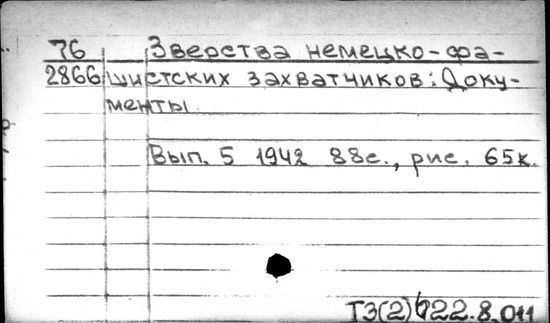 76 Зверства немецко-фа-
2866 шистских захватчиков: Доку-
менты.
Вып. 5 1942 88с., рис. 65к.
Т3(2)622.8.011